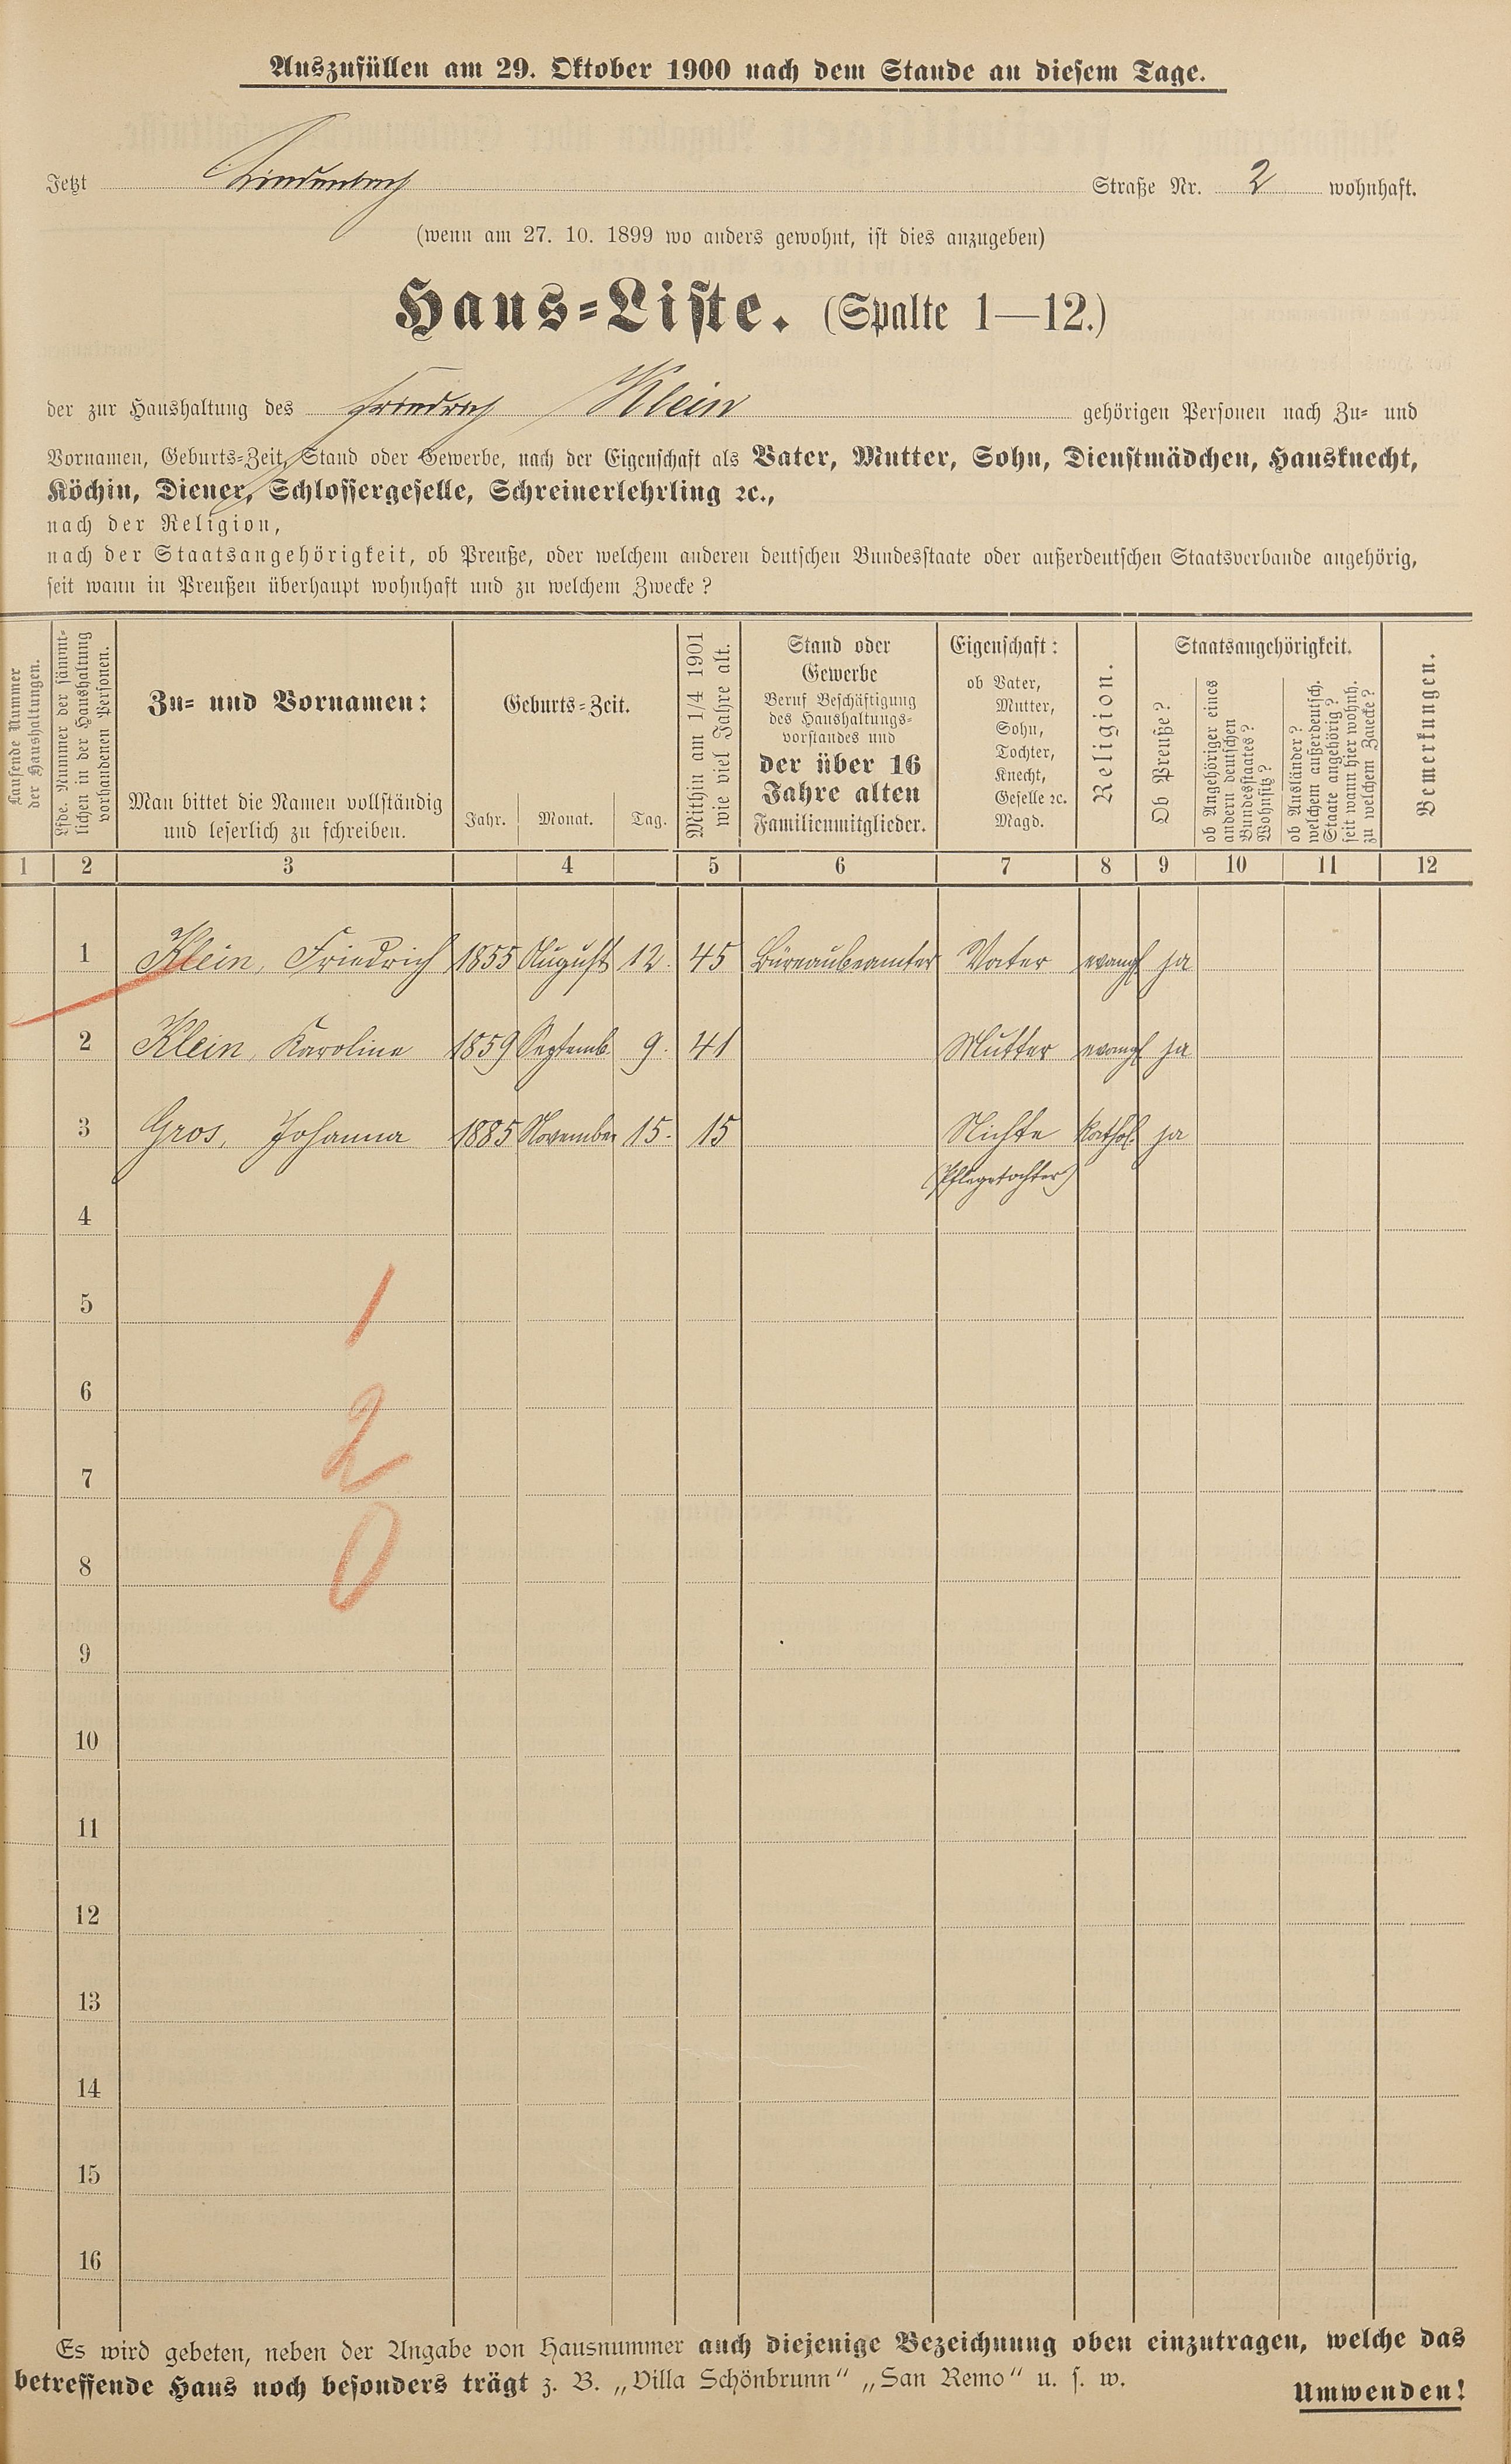 Auszufüllen am 29. Oktober 1900 nach dem Stande an diesem Tage.
Jetzt Lindenbach Straße Nr. 2 wohnhaft.
(wenn am 27. 10. 1899 wo anders gewohnt, ist dies anzugeben)
Haus-Liste. (Spalte 1—12.)
der zur Haushaltung des Friedrich Klein gehörigen Personen nach Zu- und
Vornamen, Geburts-Zeit, Stand oder Gewerbe, nach der Eigenschaft als Vater, Mutter, Sohn, Dienstmädchen, Hausknecht,
Köchin, Diener, Schlossergeselle, Schreinerlehrling ꝛc.,
nach der Religion,
nach der Staatsangehörigkeit, ob Preuße, oder welchem anderen deutschen Bundesstaate oder außerdeutschen Staatsverbande angehörig,
seit wann in Preußen überhaupt wohnhaft und zu welchem Zwecke?
Laufende Nummer
der Haushaltungen.
Lfde. Nummer der sämmt-
lichen in der Haushaltung
vorhandenen Personen.
Zu- und Vornamen:
Man bittet die Namen vollständig
und leserlich zu schreiben.
Geburts-Zeit.
Jahr. Monat. Tag.
Mithin am 1/4 1901
wie viel Jahre alt.
Stand oder
Gewerbe
Beruf Beschäftigung
des Haushaltungs-
vorstandes und
der über 16
Jahre alten
Familienmitglieder.
Eigenschaft:
ob Vater,
Mutter,
Sohn,
Tochter,
Knecht,
Geselle ꝛc.
Magd.
Religion.
Staatsangehörigkeit.
Ob Preuße?
ob Angehöriger eines
andern deutschen
Bundesstaates?
Wohnsitz?
ob Ausländer?
welchem außerdeutsch.
Staate angehörig?
seit wann hier wohnh.
zu welchem Zwecke?
Bemerkungen.
1 2 3 4 5 6 7 8 9 10 11 12
1 Klein, Friedrich 1855 August 12. 45 Büreaubeamter Vater evangl ja
2 Klein, Karoline 1859 Septemb. 9. 41 Mutter evangl ja
3 Gros, Johanna 1885 November 15. 15 Nichte kathol. ja
(Pflegetochter)
4
5
1
6
2
7
8
0
9
10
11
12
13
14
15
16
Es wird gebeten, neben der Angabe von Hausnummer auch diejenige Bezeichnung oben einzutragen, welche das
betreffende Haus noch besonders trägt z. B. „Villa Schönbrunn“ „San Remo“ u. s. w.
Umwenden!